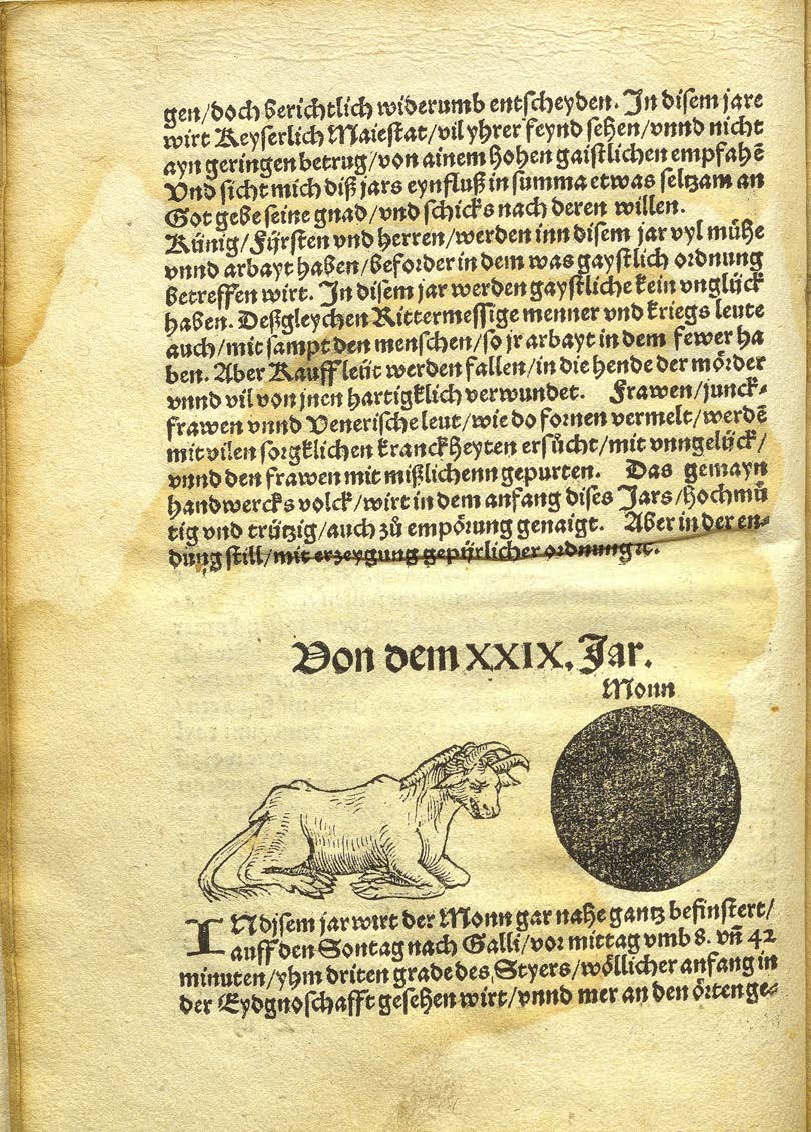 gen/doch berichtlich widerumb entscheyden. In disem jare
wirt Keyserlich Maiestat/vil yhrer feynd sehen/vnnd nicht
ayn geringen betrug/von ainem hohen gaistlichen empfahē
Vnd sicht mich diß jars eynfluß in summa etwas seltzam an
Got gebe seine gnad/vnd schicks nach deren willen.
Künig/Fürsten vnd herren/werden inn disem jar vyl mühe
vnnd arbayt haben/beforder in dem was gaystlich ordnung
betreffen wirt. In disem jar werden gaystliche kein vnglück
haben. Deßgleychen Rittermessige menner vnd kriegs leute
auch/mit sampt den menschen/so jr arbayt in dem fewer ha
ben. Aber Kauffleüt werden fallen/in die hende der mörder
vnnd vil von jnen hartigklich verwundet. Frawen/junck-
frawen vnnd Venerische leut/wie do fornen vermelt/werdē
mit vilen sorgklichen kranckheyten ersůcht/mit vnngelück/
vnnd den frawen mit mißlichenn gepurten. Das gemayn
handwercks volck/wirt in dem anfang dises Jars/hochmů
tig vnd trützig/auch zů empörung genaigt. Aber in der en-
dung still/mit erzeygung gepürlicher ordnung ꝛc.
Von dem XXIX. Jar.
Monn
IN disem jar wirt der Monn gar nahe gantz befinstert/
auff den Sontag nach Galli/vor mittag vmb 8. vñ 42
minuten/yhm driten grade des Styers/wöllicher anfang in
der Eydgnoschafft gesehen wirt/vnnd mer an den örten ge-